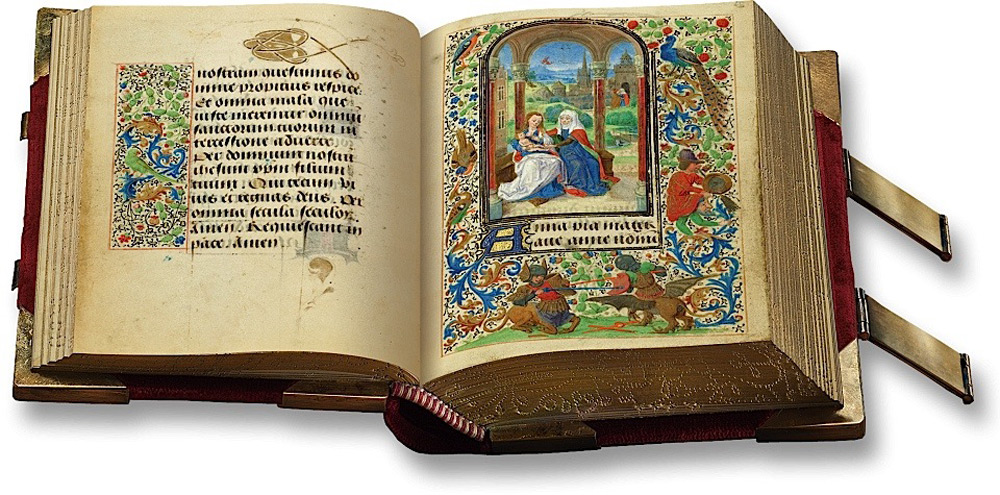 nostram quesumus do
mine propicius respice
Et omnia mala que
iuste meremur omniu
sanctorum tuorum in
tercessione auerte
Per dominum nostru
ihesum xpm filium
tuum. Qui tecum vi
uit et regnat deus. Per
omnia secula seculor
Amen. Requiescant in
pace. Amen
Anna pia mater
aue anne nomen